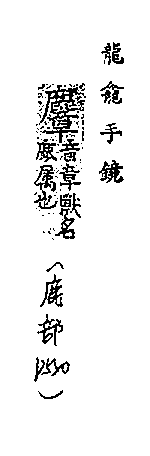 龍龕手鏡
麞音章獸名
鹿属也
(鹿部)